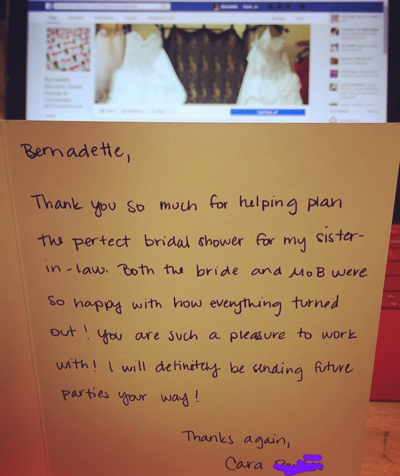 Bernadette,
Thank you so much for helping plan
the perfect bridal shower for my sister-
in-law. Both the bride and MoB were
so happy with how everything turned
out! You are such a pleasure to work
with! I will definitely be sending future
parties your way!
Thanks again,
Cara